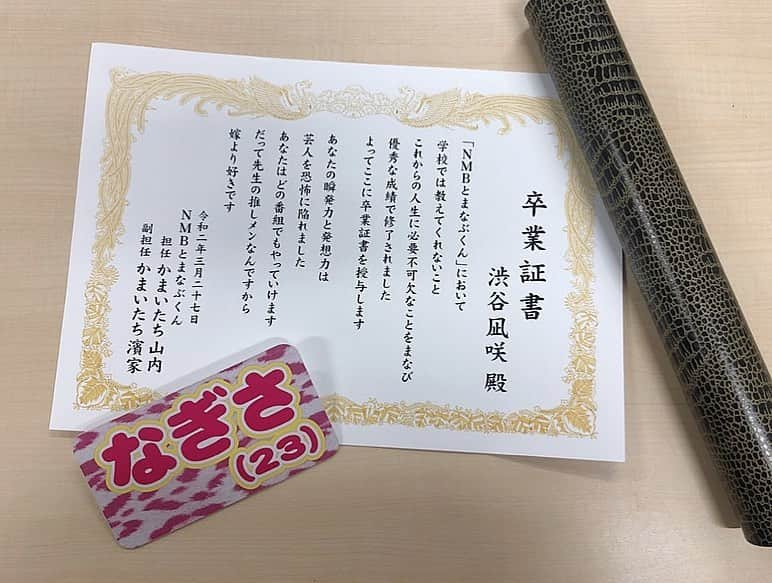 卒業証書
渋谷凪咲 殿
「NMBとまなぶくん」において
学校では教えてくれないこと
これからの人生に必要不可欠なことをまなび
優秀な成績で修了されました
よってここに卒業証書を授与します
あなたの瞬発力と発想力は
芸人を恐怖に陥れました
あなたはどの番組でもやっていけます
だって先生の推しメンなんですから
嫁より好きです
令和二年三月二十七日
NMBとまなぶくん
担任 かまいたち山内
副担任 かまいたち濱家
なぎさ
(23)